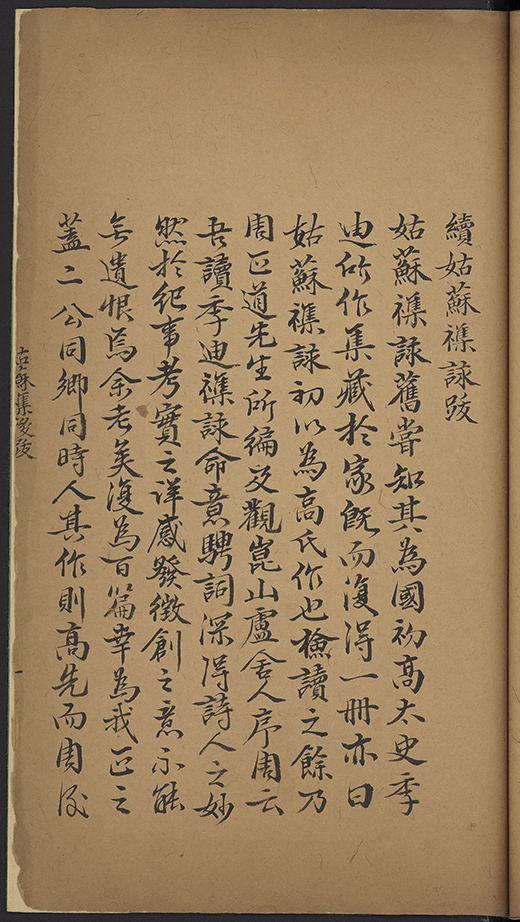 續姑蘇襍詠跋
姑蘇襍詠舊嘗知其為國初髙太史季
迪所作集藏於家旣而復淂一冊亦曰
姑蘇襍詠初以為高氏作也檢讀之餘乃
周正道先生所編及觀崑山盧舍人序周云
吾讀季迪襍詠命意騁詞深淂詩人之妙
然於紀事考實之详感發徴創之意不能
無遺恨焉余老矣復為百篇幸為我正之
葢二公同鄉同時人其作則髙先而周後
姑蘇集後跋